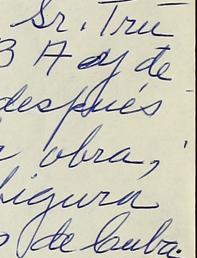 Sr. Tru
B A y de
después
r obra,
figura
o de Cuba.